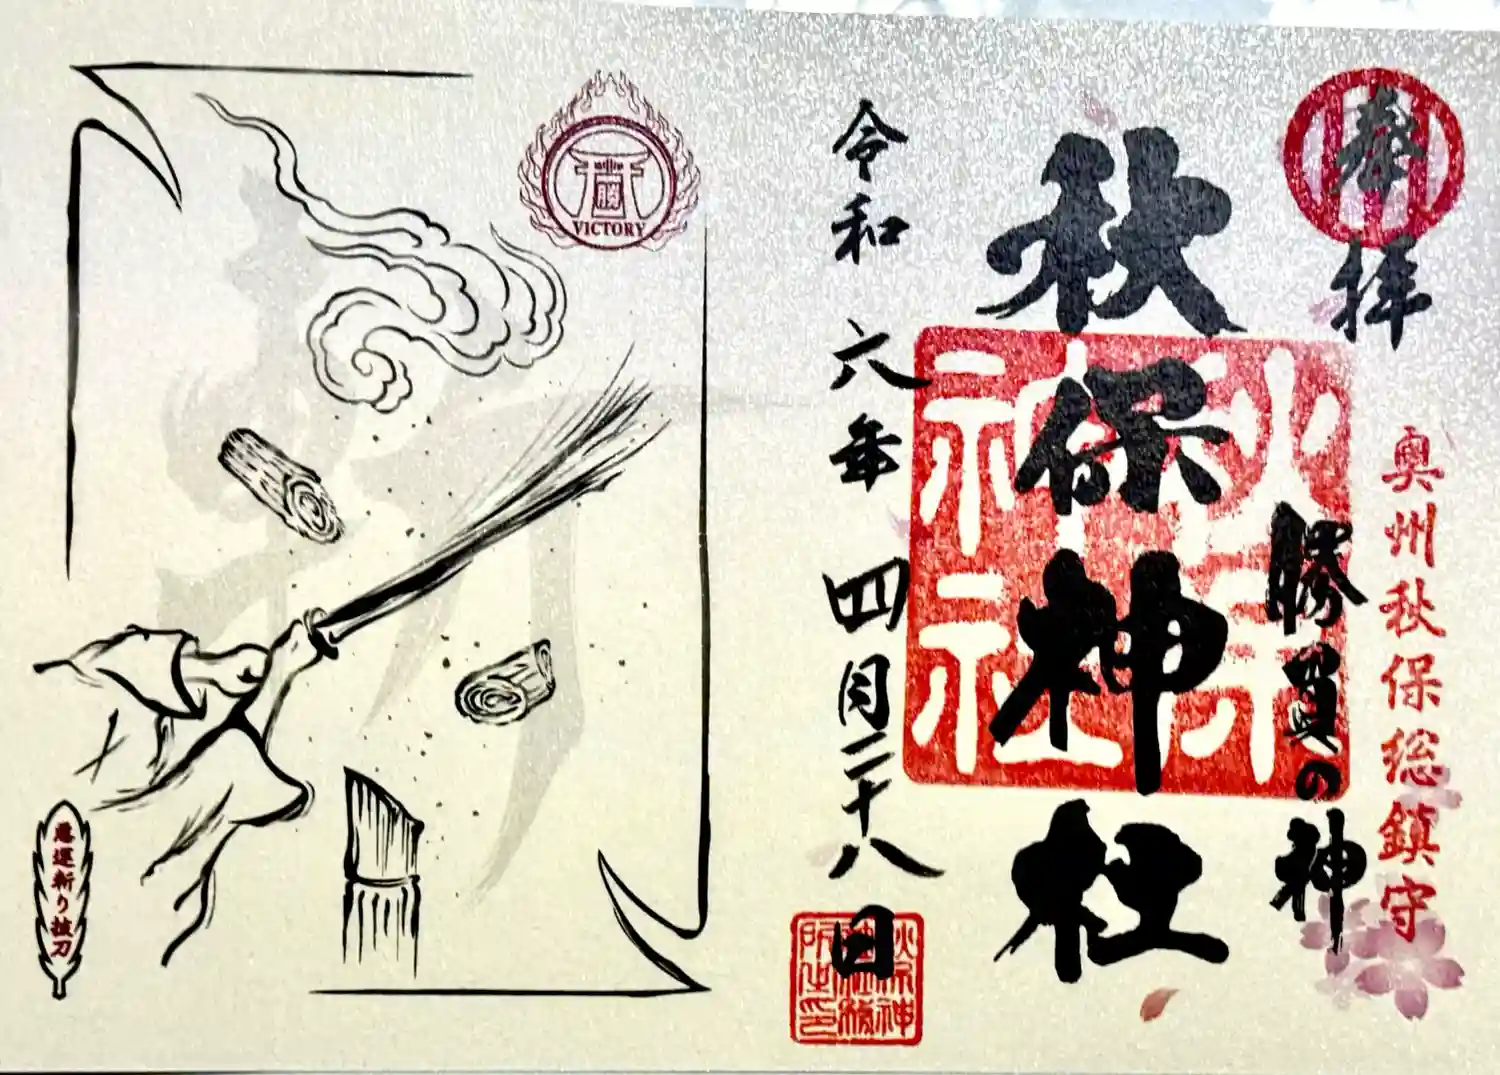 奉拝
奥州秋保総鎮守
勝負の神
秋保神社
秋保神社
令和六年四月二十八日
秋保神社社務所之印
勝
VICTORY
悪運斬り抜刀